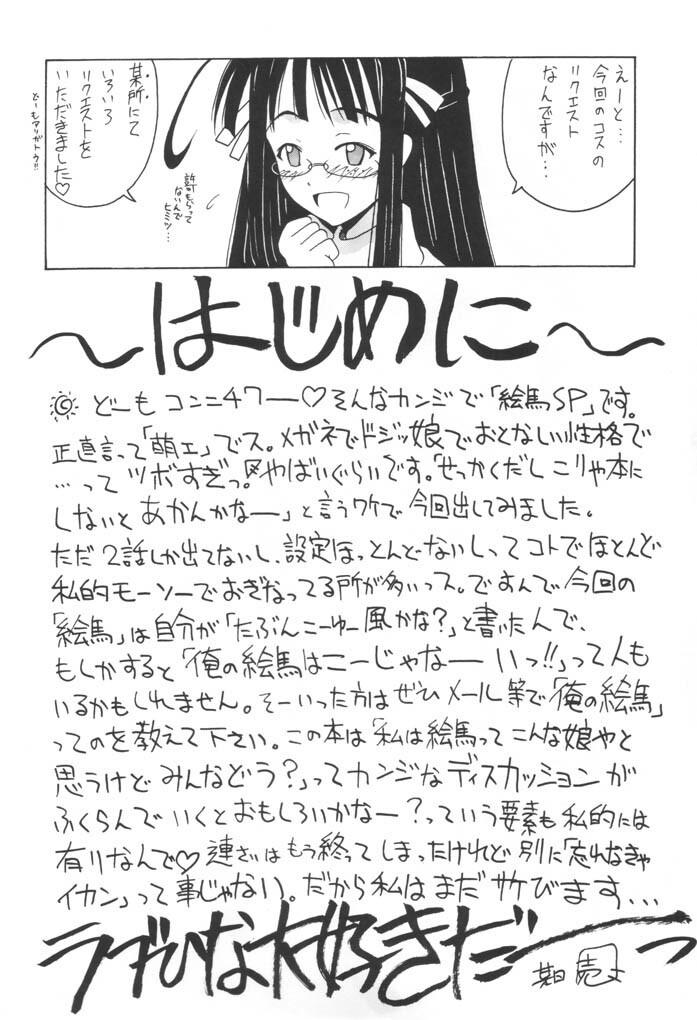 えーと…
今回のコスの
リクエスト
なんですが…
某所にて
いろいろ
リクエストを
いただきました♡
どーもアリガトウ!!
許可もらって
ないんで
ヒミツ…
〜はじめに〜
どーもコンニチワー♡そんなカンジで「絵馬SP」です。
正直言って「萌エ」でス。メガネでドジッ娘でおとなしい性格で
…ってツボすぎっ。やばいぐらいです。「せっかくだしこりゃ本に
しないとあかんかなー」と言うワケで今回出してみました。
ただ2話しか出てないし、設定ほっとんどないしってコトでほとんど
私的モーソーでおぎなってる所が多いっス。ですんで今回の
「絵馬」は自分が「たぶんこーゆー風かな?」と書いたんで、
もしかすると「俺の絵馬はこーじゃなーいっ!!」って人も
いるかもしれません。そーいった方はぜひメール等で「俺の絵馬」
ってのを教えて下さい。この本は「私は絵馬ってこんな娘やと
思うけどみんなどう?」ってカンジなディスカッションが
ふくらんでいくとおもしろいかなー?っていう要素も私的には
有りなんで♡連さいはもう終ってしまったけれど別に「忘れなきゃ
イカン」って事じゃない。だから私はまだサケびます…
ラブひな大好きだーっ